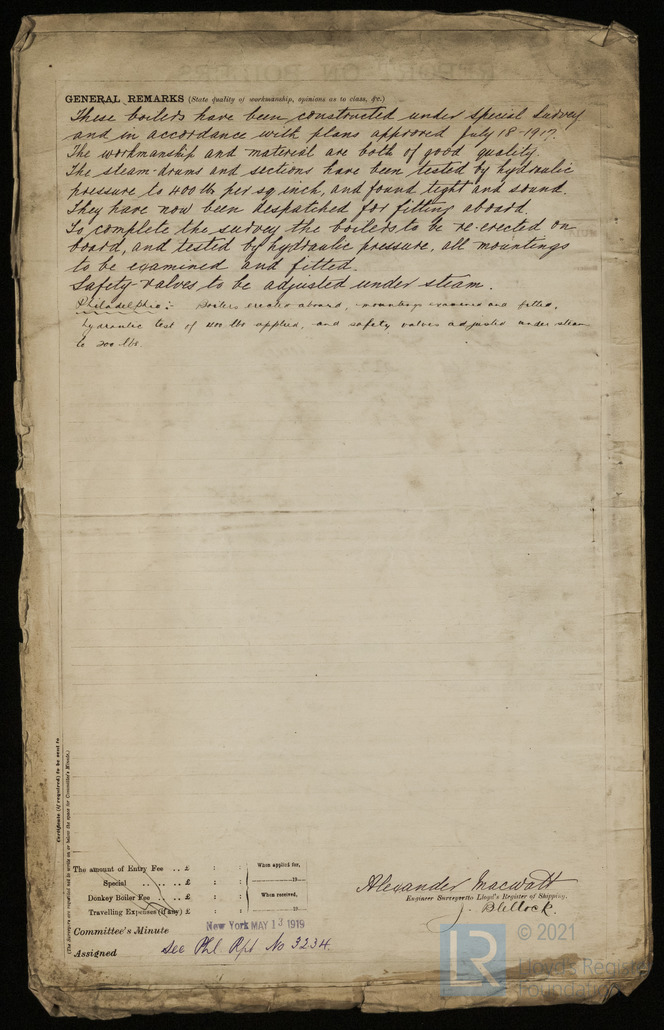 GENERAL REMARKS (State quality of workmanship, opinions as to class, &c.)
These boilers have been constructed under Special Survey
and in accordance with plans approved July 18-1917.
The workmanship and material are both of good quality.
The steam-drums and sections have been tested by hydraulic
pressure to 400 lb per sq. inch, and found tight and sound.
They have now been despatched for fitting aboard.
To complete the survey the boilers to be re-erected on
board, and tested by hydraulic pressure, all mountings
to be examined and fitted.
Safety-valves to be adjusted under steam.
Philadelphia:- Boilers erected aboard, mountings examined and fitted,
hydraulic test of 400 lbs applied, and safety valves adjusted under steam
to 200 lbs.
Certificate (if required) to be sent to
(The Surveyors are requested not to write on or below the space for Committee's Minute.)
The amount of Entry Fee .. £ : :
Special .. .. £ : :
Donkey Boiler Fee .. £ : :
Travelling Expenses (if any) £ : :
When applied for,
19
When received,
19
Alexander Macwatt
Engineer Surveyor to Lloyd's Register of Shipping.
Committee's Minute
New York MAY 13 1919
Assigned
See Phl Rpt No 3234.
LR
© 2021
Lloyd's Register
Foundation